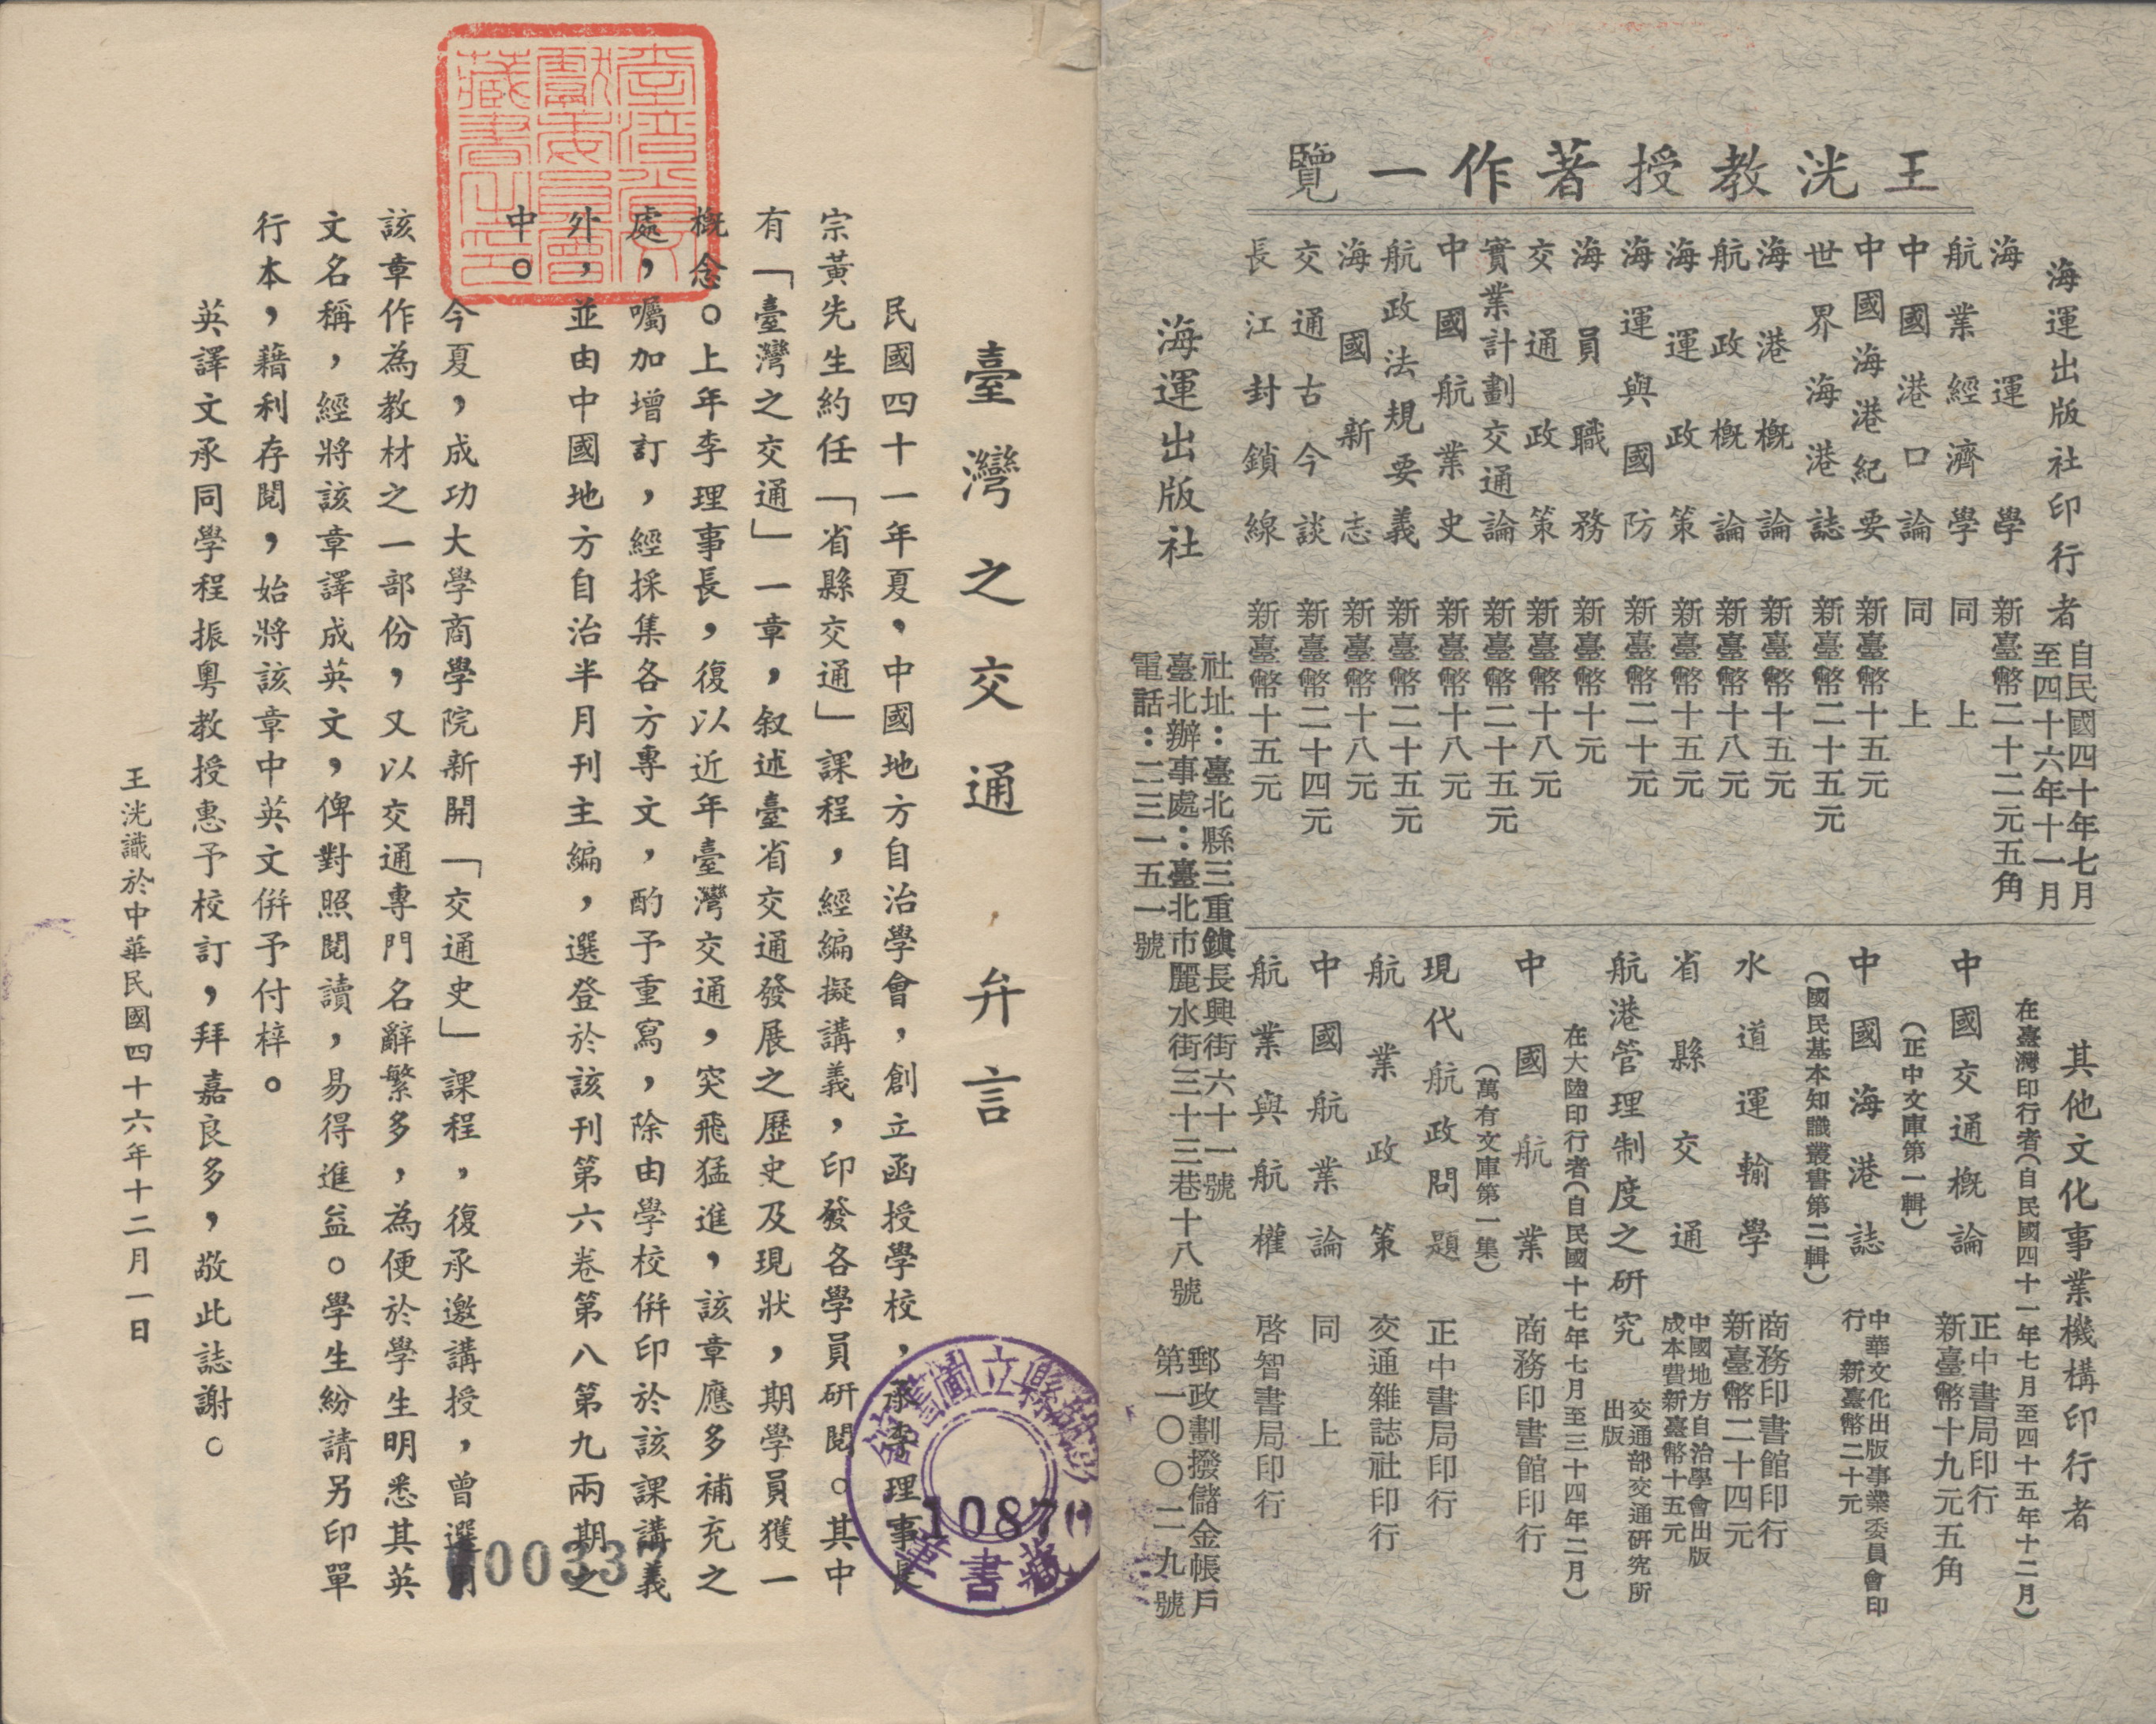 王洸教授著作一覽
海運出版社印行者
自民國四十年七月
至四十六年十一月
海運學 新臺幣二十二元五角
航業經濟學 同上
中國港口論 同上
中國海港紀要 新臺幣十五元
世界海港誌 新臺幣二十五元
海港概論 新臺幣十五元
航政概論 新臺幣十八元
海運政策 新臺幣十五元
海運與國防 新臺幣二十元
海員職務 新臺幣十元
交通政策 新臺幣十八元
實業計劃交通論 新臺幣二十五元
中國航業史 新臺幣十八元
航政法規要義 新臺幣二十五元
海國新志 新臺幣十八元
交通古今談 新臺幣二十四元
長江封鎖線 新臺幣十五元
其他文化事業機構印行者
在臺灣印行者(自民國四十一年七月至四十五年十二月)
中國交通概論 正中書局印行
新臺幣十九元五角
(正中文庫第一輯)
中國海港誌 中華文化出版事業委員會印
行 新臺幣二十元
(國民基本知識叢書第二輯)
水道運輸學 商務印書館印行
新臺幣二十四元
省縣交通 中國地方自治學會出版
成本費新臺幣十五元
航港管理制度之研究 交通部交通研究所
出版
在大陸印行者(自民國十七年七月至三十四年二月)
中國航業 商務印書館印行
(萬有文庫第一集)
現代航政問題 正中書局印行
航業政策 交通雜誌社印行
中國航業論 同上
航業與航權 啓智書局印行
海運出版社
社址：臺北縣三重鎮長興街六十一號
臺北辦事處：臺北市麗水街三十三巷十八號
電話：二三一五一號
郵政劃撥儲金帳戶
第一〇〇二九號
臺灣之交通弁言
民國四十一年夏，中國地方自治學會，創立函授學校，承李理事長
宗黃先生約任「省縣交通」課程，經編擬講義，印發各學員研閱。其中
有「臺灣之交通」一章，叙述臺省交通發展之歷史及現狀，期學員獲一
概念。上年李理事長，復以近年臺灣交通，突飛猛進，該章應多補充之
處，囑加增訂，經採集各方專文，酌予重寫，除由學校併印於該課講義
外，並由中國地方自治半月刊主編，選登於該刊第六卷第八第九兩期之
中。
今夏，成功大學商學院新開「交通史」課程，復承邀講授，曾選用
該章作為教材之一部份，又以交通專門名辭繁多，為便於學生明悉其英
文名稱，經將該章譯成英文，俾對照閱讀，易得進益。學生紛請另印單
行本，藉利存閱，始將該章中英文併予付梓。
英譯文承同學程振粵教授惠予校訂，拜嘉良多，敬此誌謝。
王洸識於中華民國四十六年十二月一日
臺灣省文
獻委員會
藏書之印
縣立圖書館
10871
藏書章